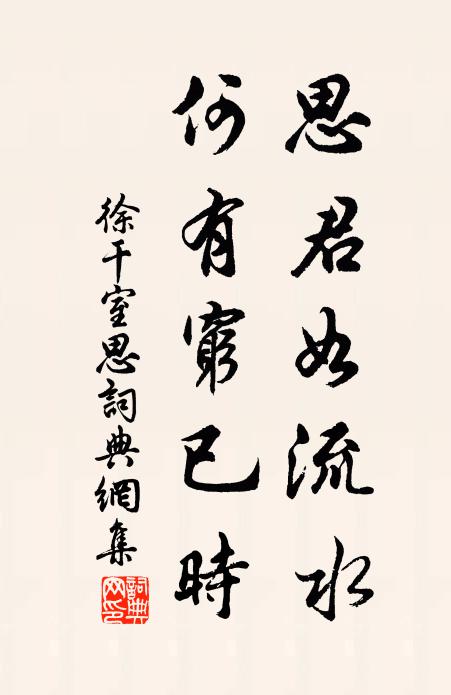 思君如流水
何有窮已時
徐干室思詞典網集
詞典網印